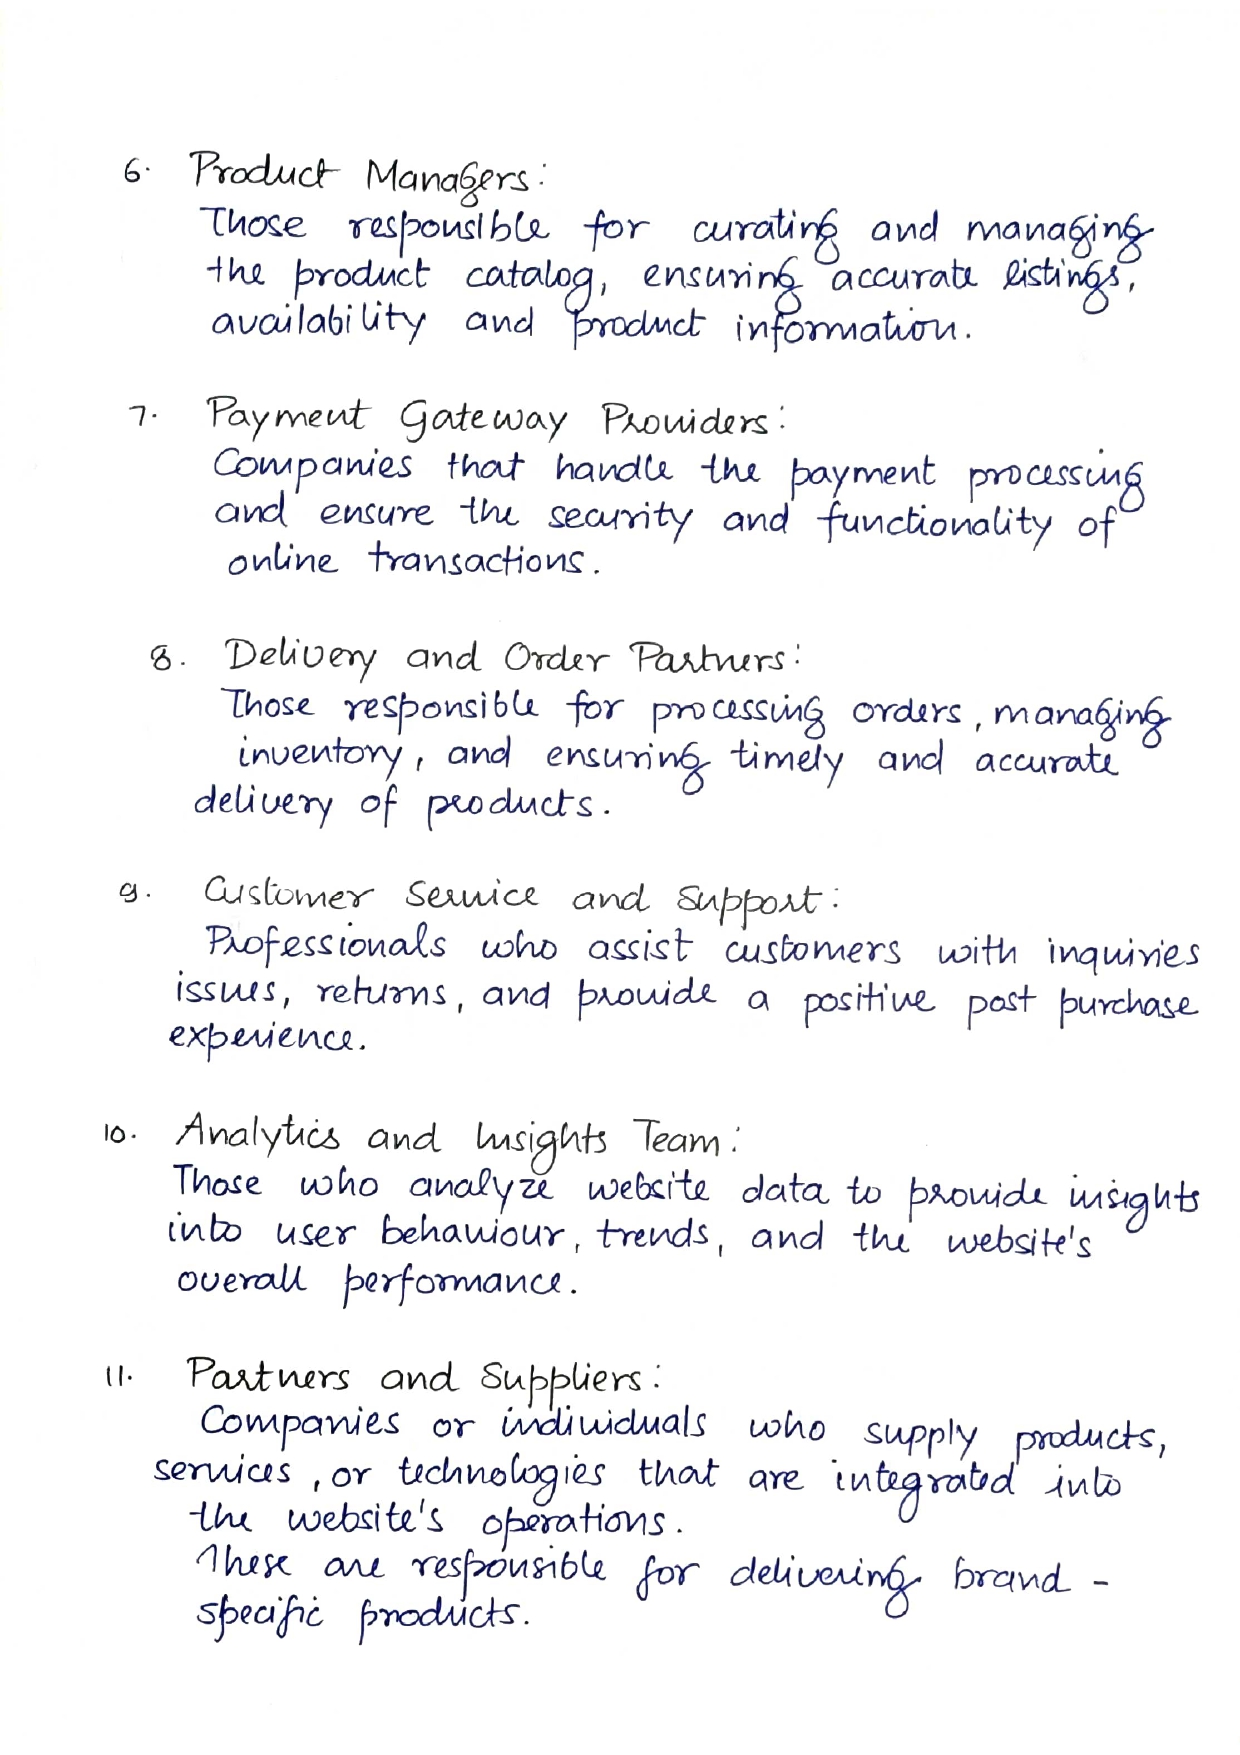 6. Product Managers:
Those responsible for curating and managing
the product catalog, ensuring accurate listings,
availability and product information.
7. Payment Gateway Providers:
Companies that handle the payment processing
and ensure the security and functionality of
online transactions.
8. Delivery and Order Partners:
Those responsible for processing orders, managing
inventory, and ensuring timely and accurate
delivery of products.
9. Customer Service and Support:
Professionals who assist customers with inquiries
issues, returns, and provide a positive post purchase
experience.
10. Analytics and Insights Team:
Those who analyze website data to provide insights
into user behaviour, trends, and the website's
overall performance.
11. Partners and Suppliers:
Companies or individuals who supply products,
services, or technologies that are integrated into
the website's operations.
These are responsible for delivering brand -
specific products.